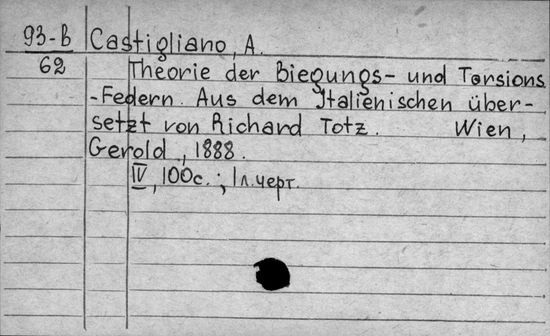 93-В Castigliano, A.
62 Theorie der Biegungs- und Torsions
-Federn. Aus dem Italienischen über-
setzt von Richard Totz. Wien,
Gerold, 1888.
IV, 100с.; 1л.черт.